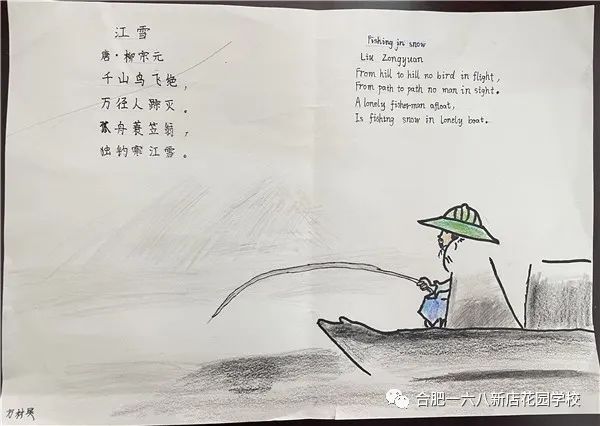 江雪
唐·柳宗元
千山鸟飞绝，
万径人踪灭。
孤舟蓑笠翁，
独钓寒江雪。
Fishing in snow
Liu Zongyuan
From hill to hill no bird in flight,
From path to path no man in sight.
A lonely fisher-man afloat,
Is fishing snow in lonely boat.
合肥一六八新店花园学校